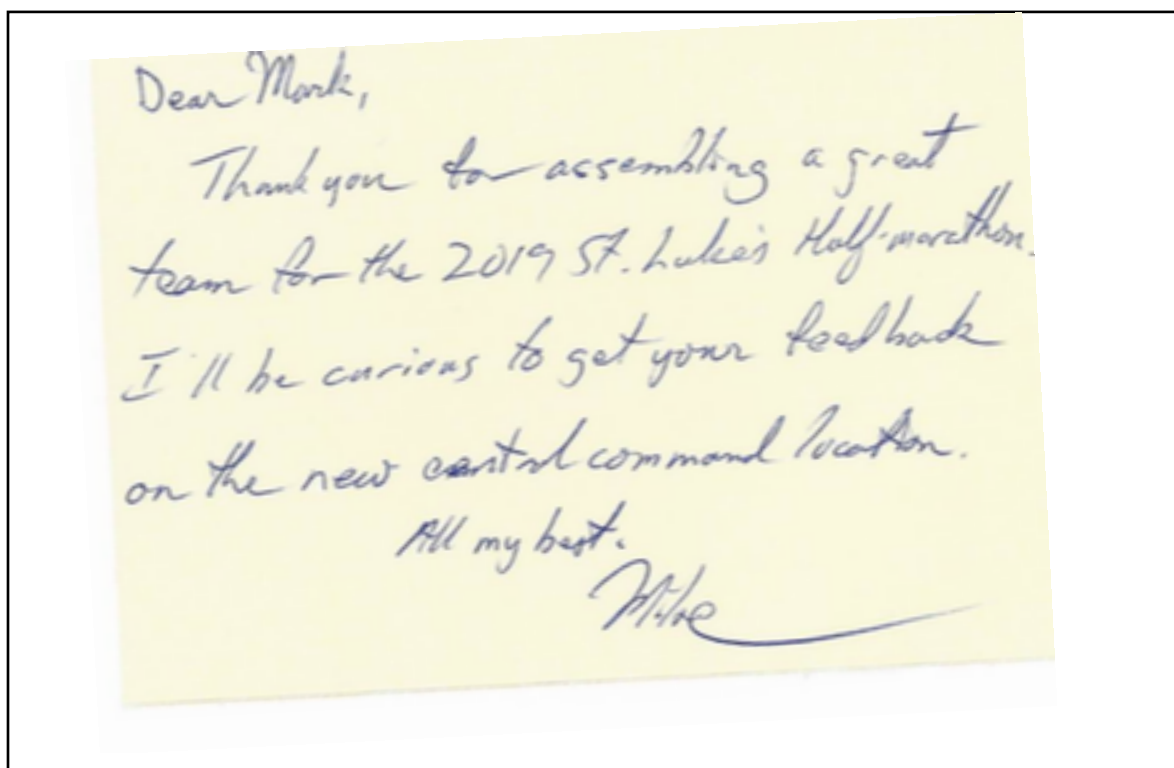 Dear Mark,
Thank you for assembling a great
team for the 2019 St. Luke's Half-marathon.
I'll be curious to get your feedback
on the new central command location.
All my best.
Mike